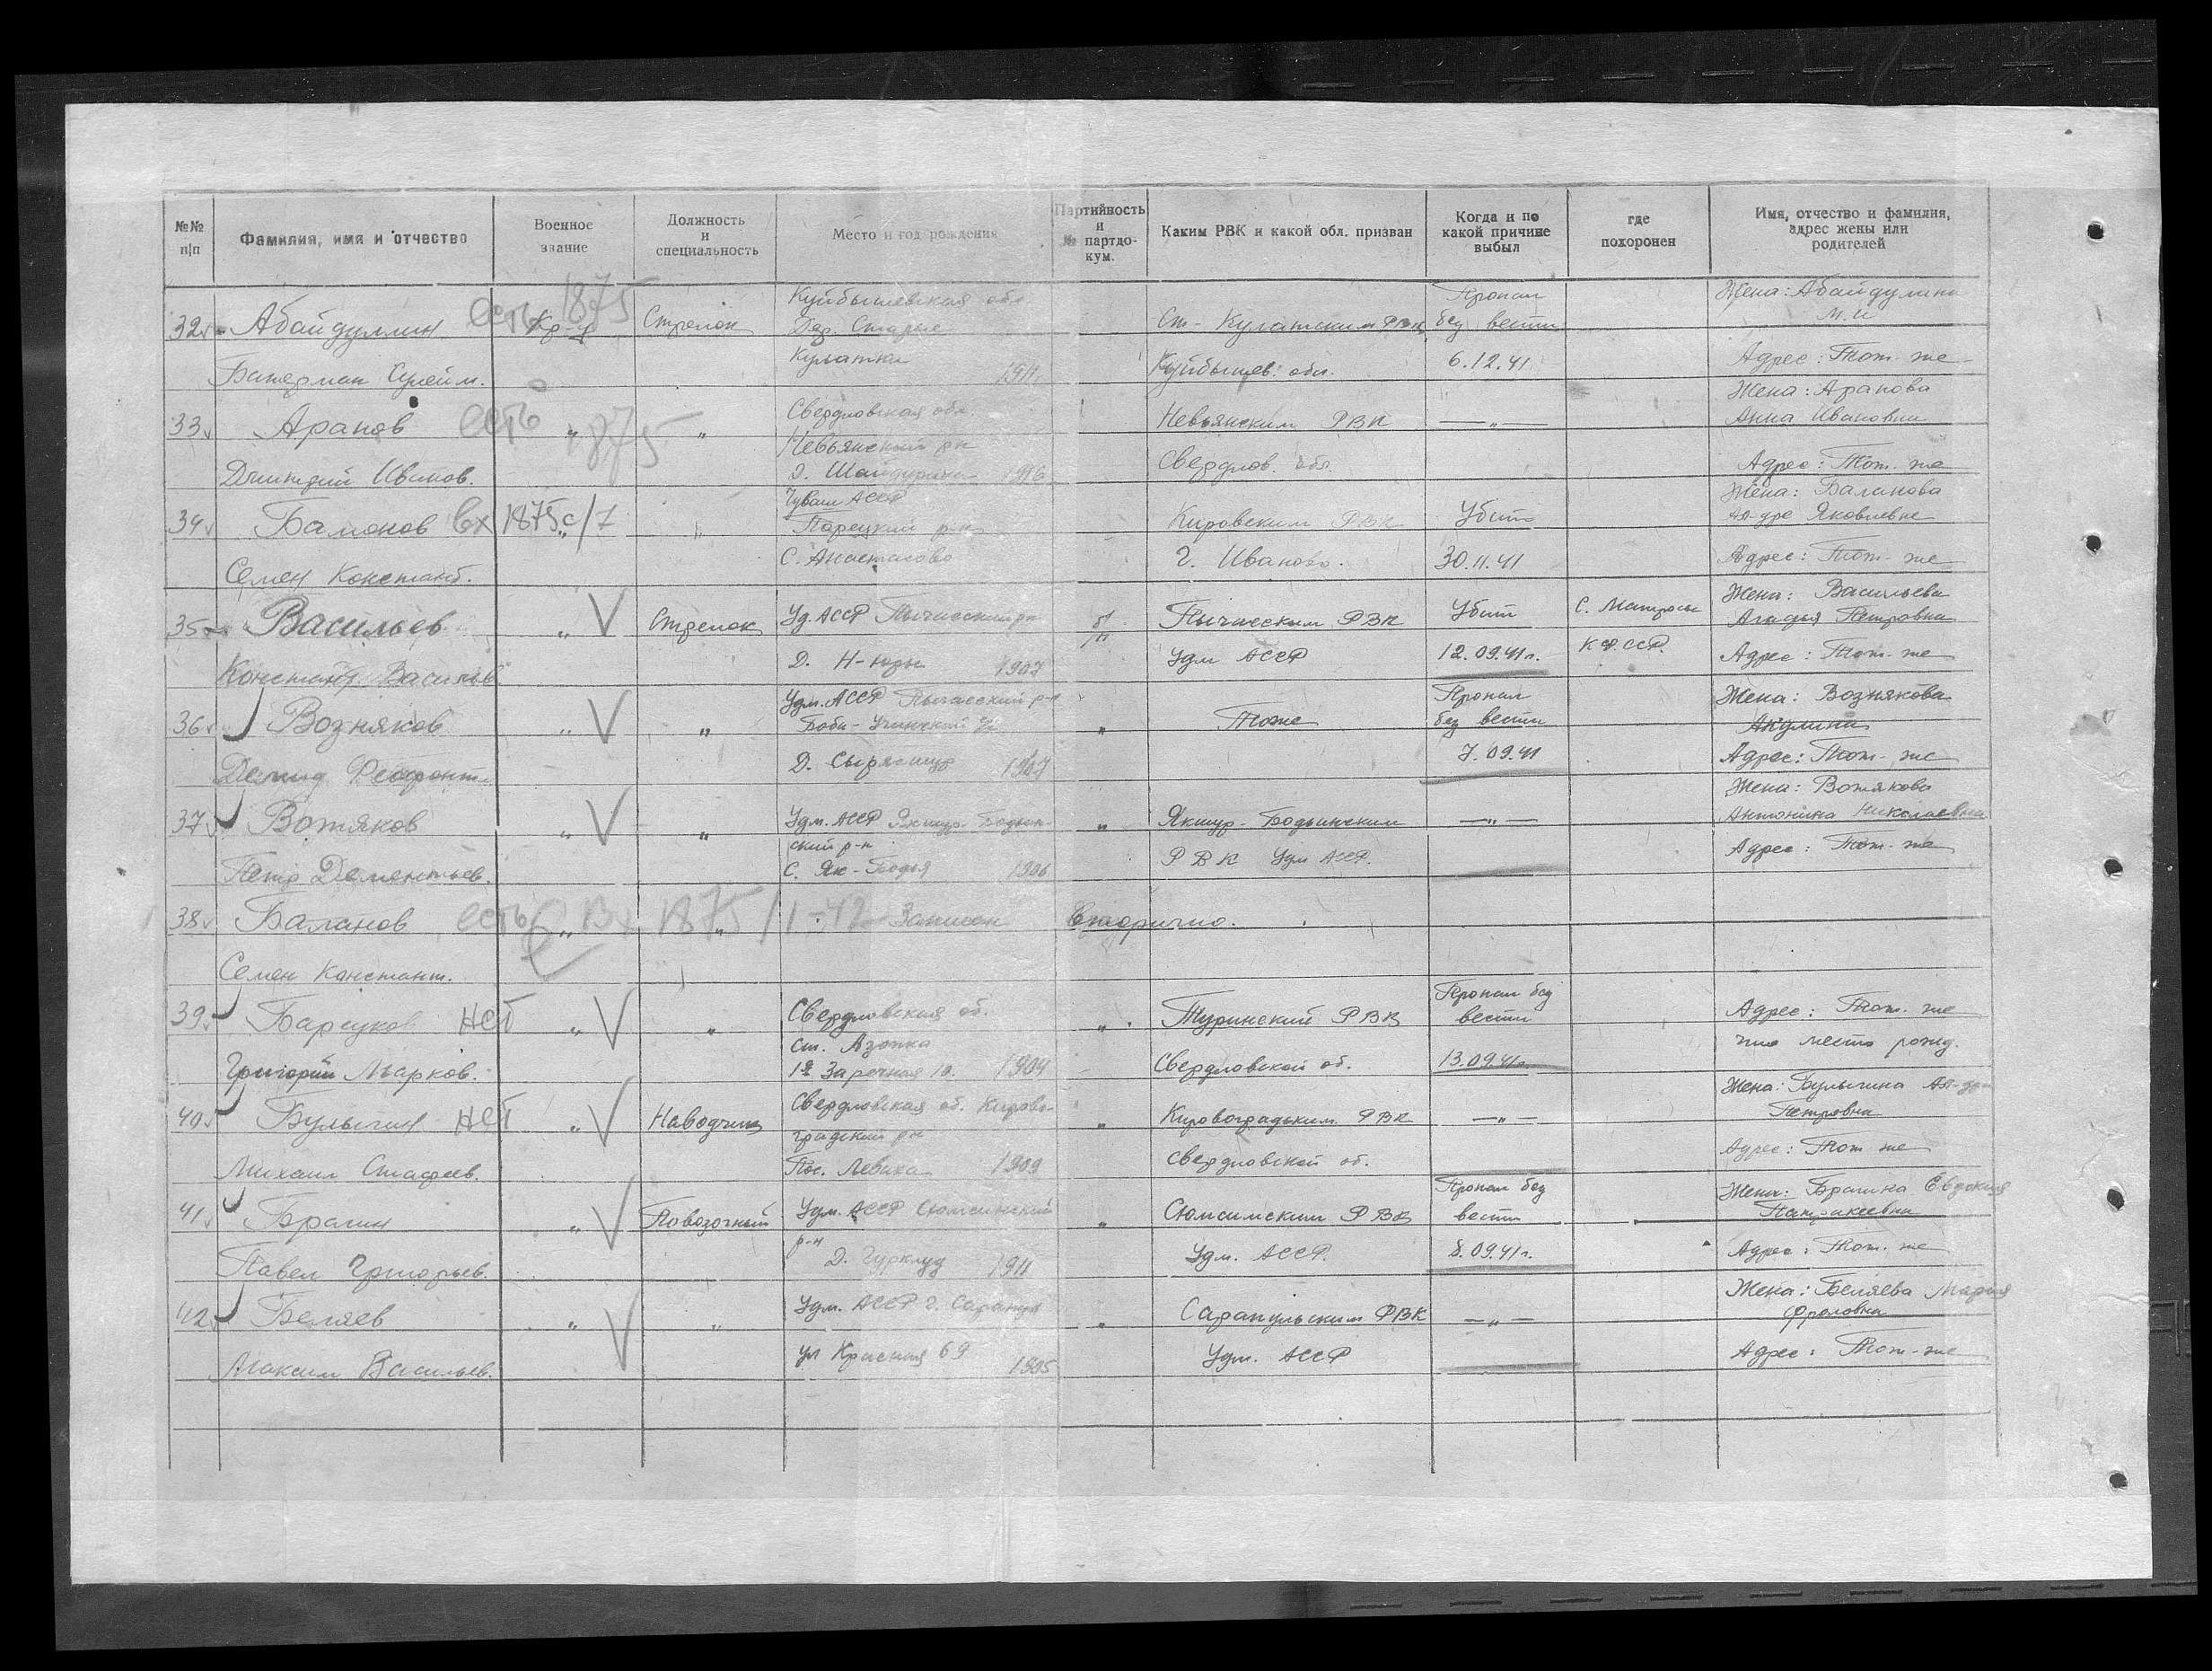 №№ п/п
Фамилия, имя и отчество
Военное звание
Должность и специальность
Место и год рождения
Партийность и № партдокум.
Каким РВК и какой обл. призван
Когда и по какой причине выбыл
где похоронен
Имя, отчество и фамилия, адрес жены или родителей
32 Абайдуллин есть 1875 Кр-ц Стрелок Куйбышевская обл. Дер. Старые Ст-Кулаткским РВК Пропал без вести Жена: Абайдулина М.И
Сулейм. Кулатки 1911 Куйбышев. обл. 6.12.41 Адрес: Тот-же
33 Арапов есть 1875 „ „ Свердловская обл. Невьянский рн Невьянским РВК —„— Жена: Арапова Анна Ивановна
Дмитрий Иванов. Д. 1916 Свердлов. обл. Адрес: Тот-же
34 Баланов Вх 1875с/7 „ „ Чуваш АССР Порецкий р-н Кировским РВК Убит Жена: Баланова Ал-дре Яковлевне
Семен Констант. С. Анастасово г. Иваново. 30.11.41 Адрес: Тот-же
35 Васильев „ Стрелок Уд. АССР Пычасский рн б/п Пычасским РВК Убит С. Матросы Жена: Васильева Агадья Петровна
Констант. Васильев Д. Н-юры 1907 Удм АССР 12.09.41г. К.Ф.ССР. Адрес: Тот-же
36 Возняков „ „ Удм. АССР Пычасский р-н Боби-Учинский „ Тоже Пропал без вести Жена: Вознякова Акулина
Демид Феофонт. Д. 1907 7.09.41 Адрес: Тот-же
37 Вотяков „ „ Удм. АССР Якшур-Бодьин- ский р-н „ Якшур-Бодьинским —„— Жена: Вотякова Антонина Николаевна
Петр Дементьев. С. Як-Бодья 1906 РВК Удм АССР. Адрес: Тот-же
38 Баланов есть „ Вх 1875/1-42 „ Записан Вторично.
Семен Констант.
39 Барсуков нет „ „ Свердловская об. Ст. Азанка „ Туринский РВК Пропал без вести Адрес: Тот-же
Григорий Марков. 1я Заречная 10. 1904 Свердловской об. 13.09.41г. что место рожд.
40 Булыгин нет „ Наводчик Свердловская об. Кирово- градский рн „ Кировоградским РВК —„— Жена: Булыгина Ал-др- Петровна
Михаил Стафеев. Пос. Левиха 1909 Свердловской об. Адрес: Тот же
41 Брагин „ Повозочный Удм. АССР Сюмсинский р-н „ Сюмсимским РВК Пропал без вести Жена: Брагина Евдокия
Павел Григорьев. Д. Гурклуд 1911 Удм. АССР. 8.09.41г. Адрес: Тот-же
42 Беляев „ „ Удм. АССР г. Сарапул „ Сарапульским РВК —„— Жена: Беляева Мария Фроловна
Максим Васильев. ул Красная 69 1905 Удм. АССР Адрес: Тот-же